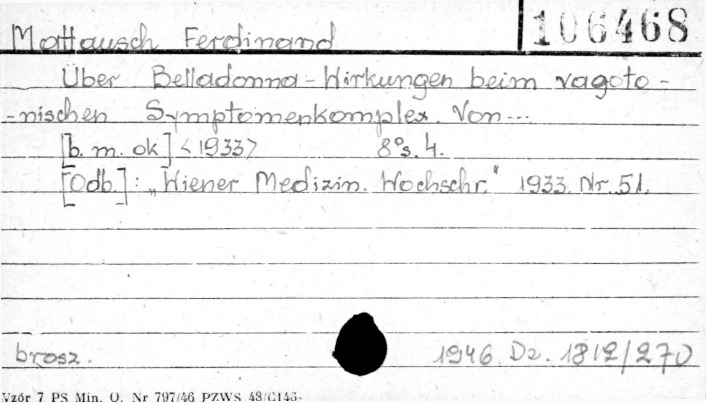 106468
Mattausch Ferdinand
Über Belladonna-Wirkungen beim vagoto-
-nischen Symptomenkomplex. Von...
[b. m. ok] <1933> 8° s. 4.
[Odb.]: „Wiener Medizin. Wochschr." 1933. Nr. 51.
brosz. 1946. Dz. 1812/270
Wzór 7 PS Min. O. Nr 797/46 PZWS 48/G146-